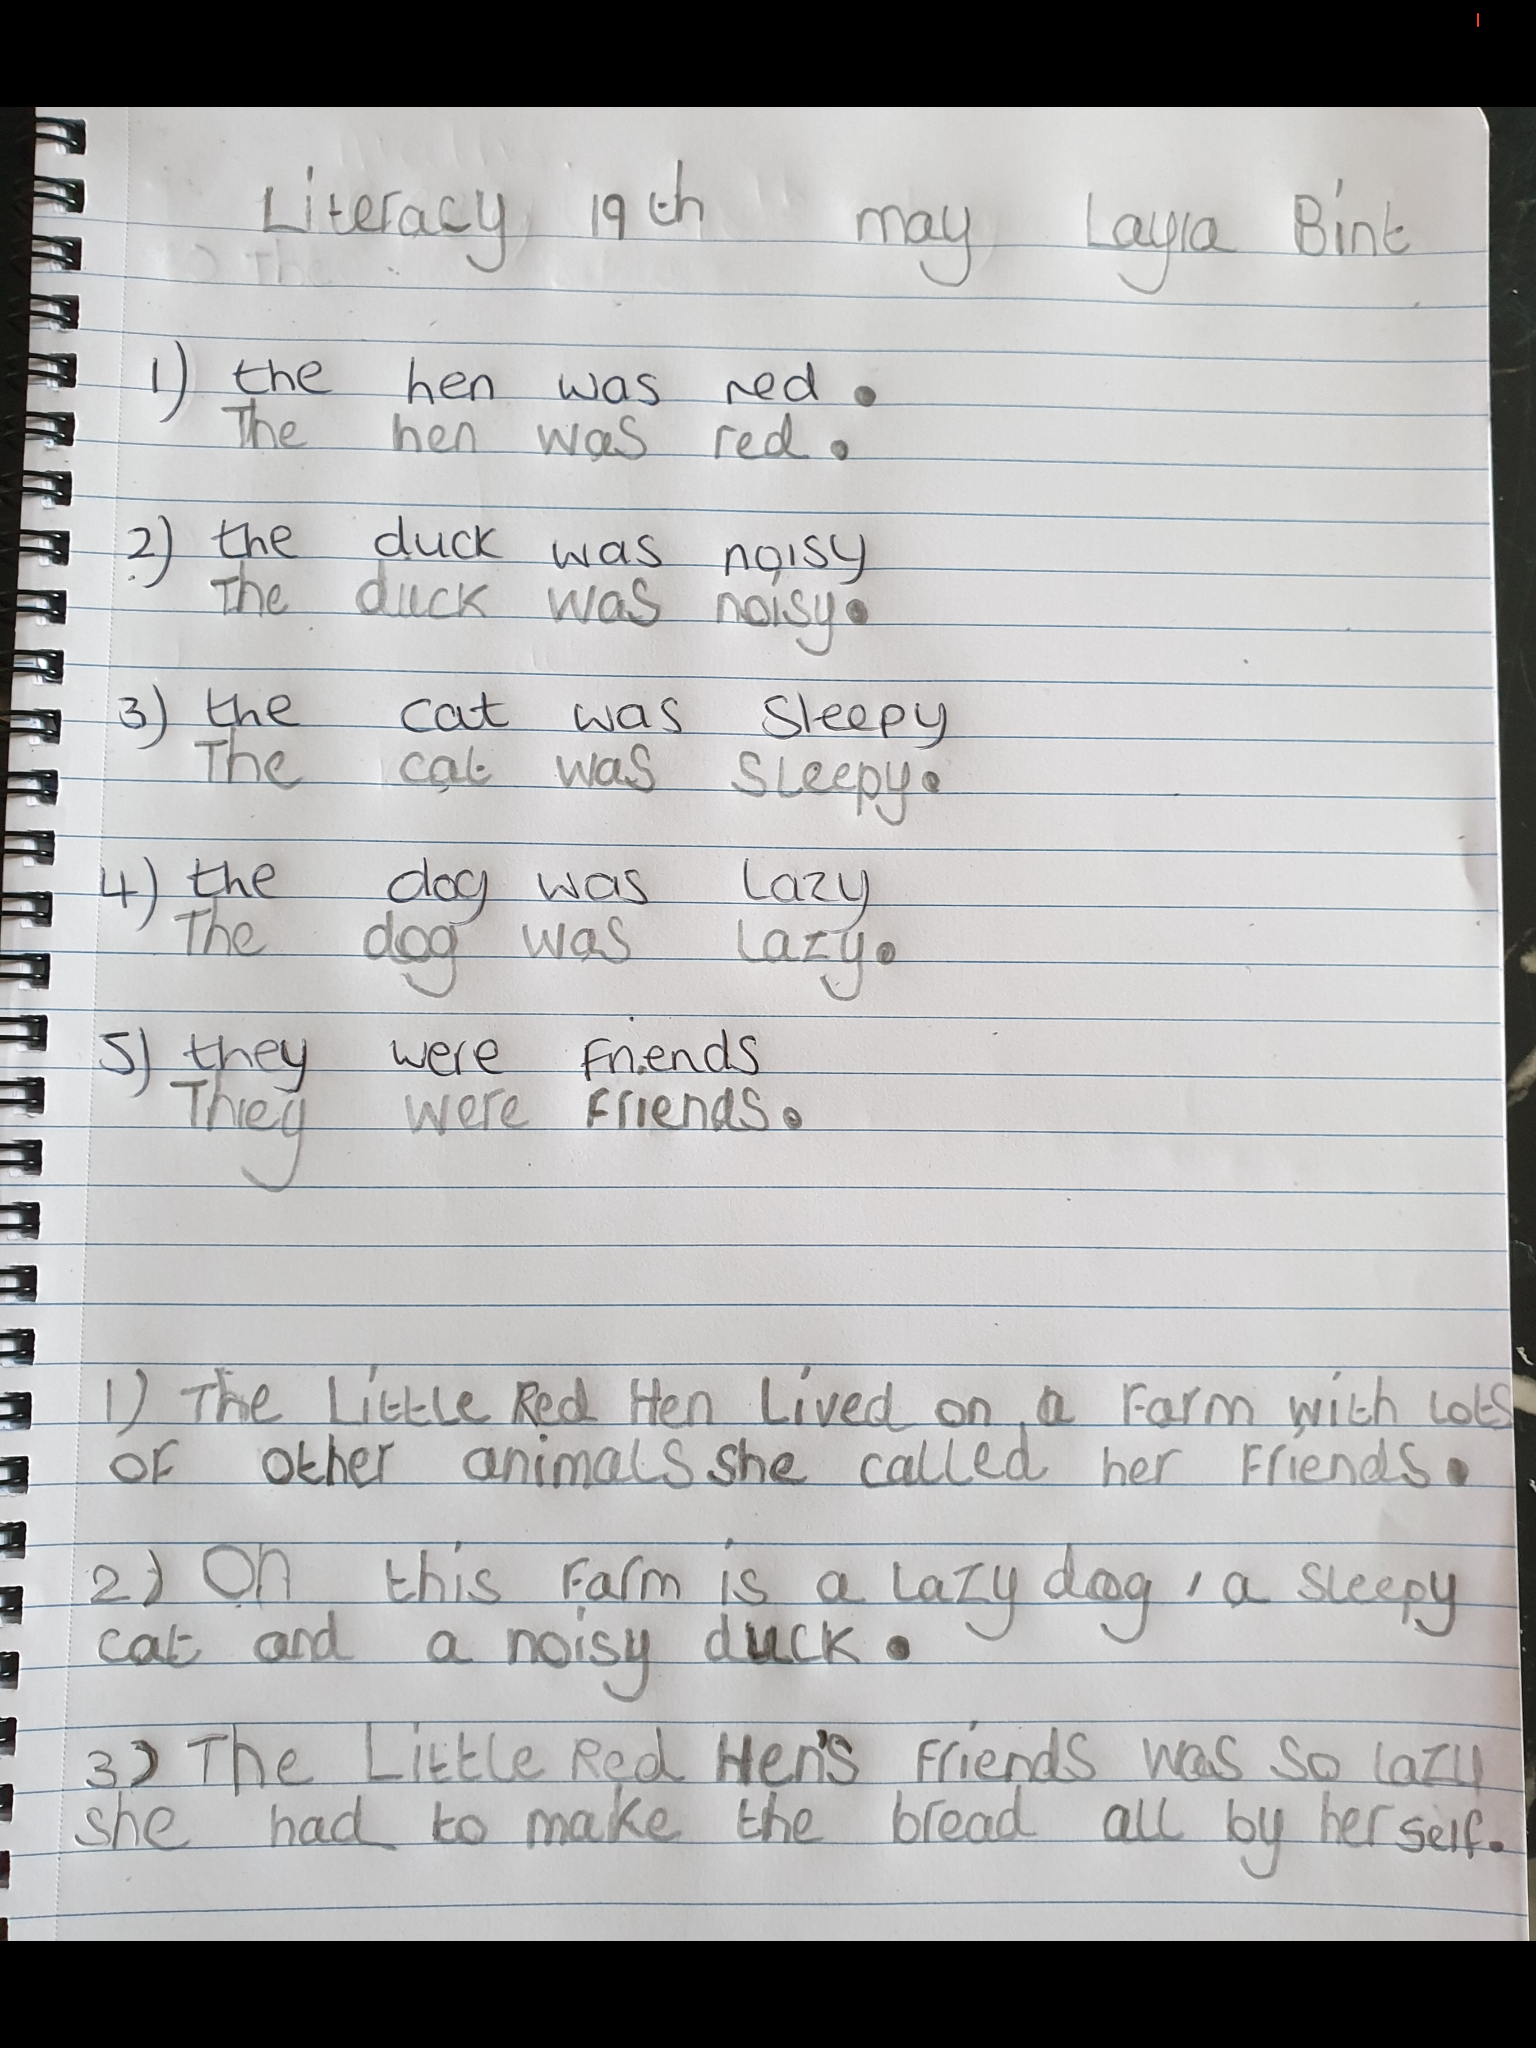 Literacy 19th may Layla Bint
1) the hen was red.
The hen was red.
2) the duck was noisy
The duck was noisy.
3) the cat was sleepy
The cat was sleepy.
4) the dog was lazy
The dog was lazy.
5) they were friends
They were friends.
1) The Little Red Hen Lived on a farm with lots
of other animals she called her friends.
2) On this farm is a lazy dog, a sleepy
cat and a noisy duck.
3) The Little Red Hen's friends was so lazy
she had to make the bread all by her self.